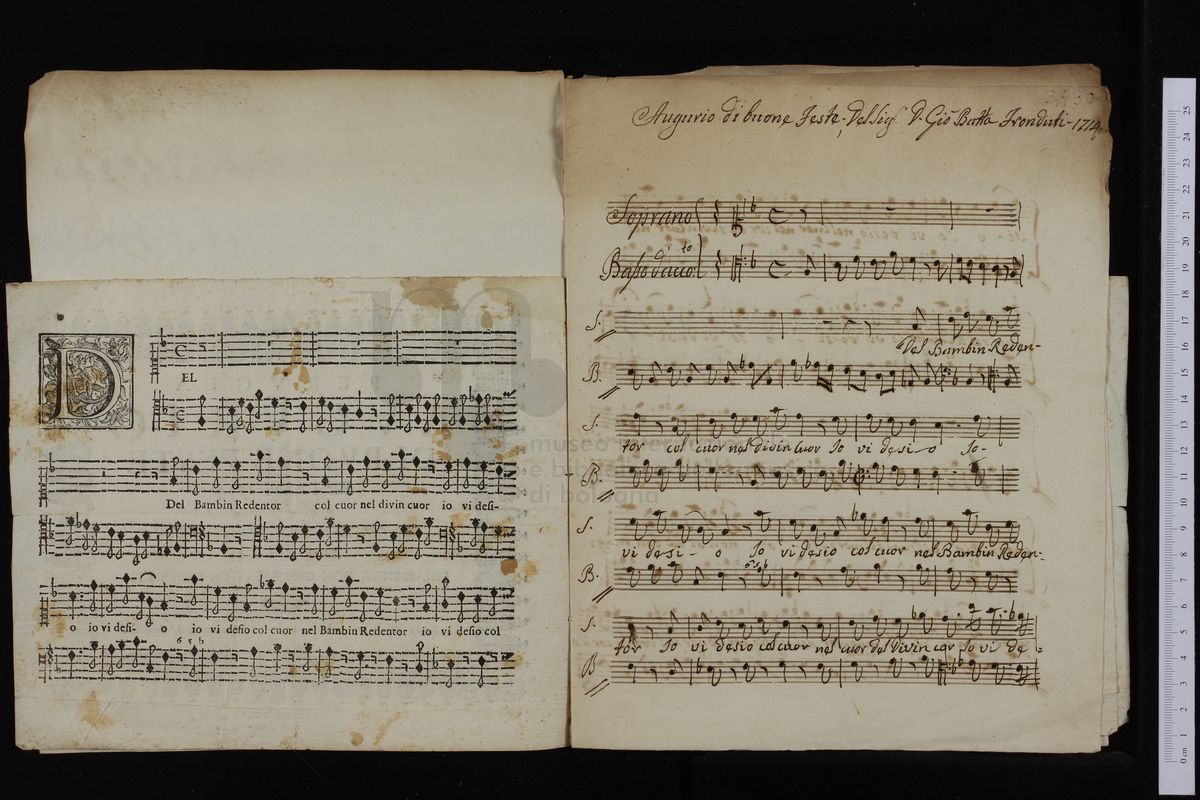 D
EL
Del Bambin Redentor col cuor nel divin cuor io vi desi-
o io vi desi- o io vi desio col cuor nel Bambin Redentor io vi desio col
6 5 b
Augurio di buone Feste, Del Sig.r D. Gio Batta Fronduti - 1714
Soprano
Basso d'acco:to
S.
Del Bambin Reden-
B.
S.
tor col cuor nel Divin Cuor Io vi desi-o Io-
B.
S.
vi desi- o Io vi desio col cuor nel Bambin Reden-
B.
6 5 b
S.
tor Io vi desio col cuor nel cuor del Divin cor Io vi de-
B
museo
e bib
di bologna
0 cm 1 2 3 4 5 6 7 8 9 10 11 12 13 14 15 16 17 18 19 20 21 22 23 24 25